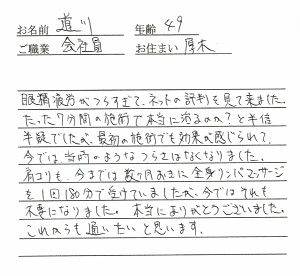 お名前 道川 年齢 49
ご職業 会社員 お住まい 厚木
眼精疲労がつらすぎて、ネットの評判を見て来ました。
たった7分間の施術で本当に治るのか？と半信
半疑でしたが、最初の施術でも効果が感じられて、
今では当初のようなつらさはなくなりました。
肩こりも、今までは数ヶ月おきに全身リンパマッサージ
を1回180分で受けていましたが、今ではそれも
不要になりました。本当にありがとうございました。
これからも通いたいと思います。